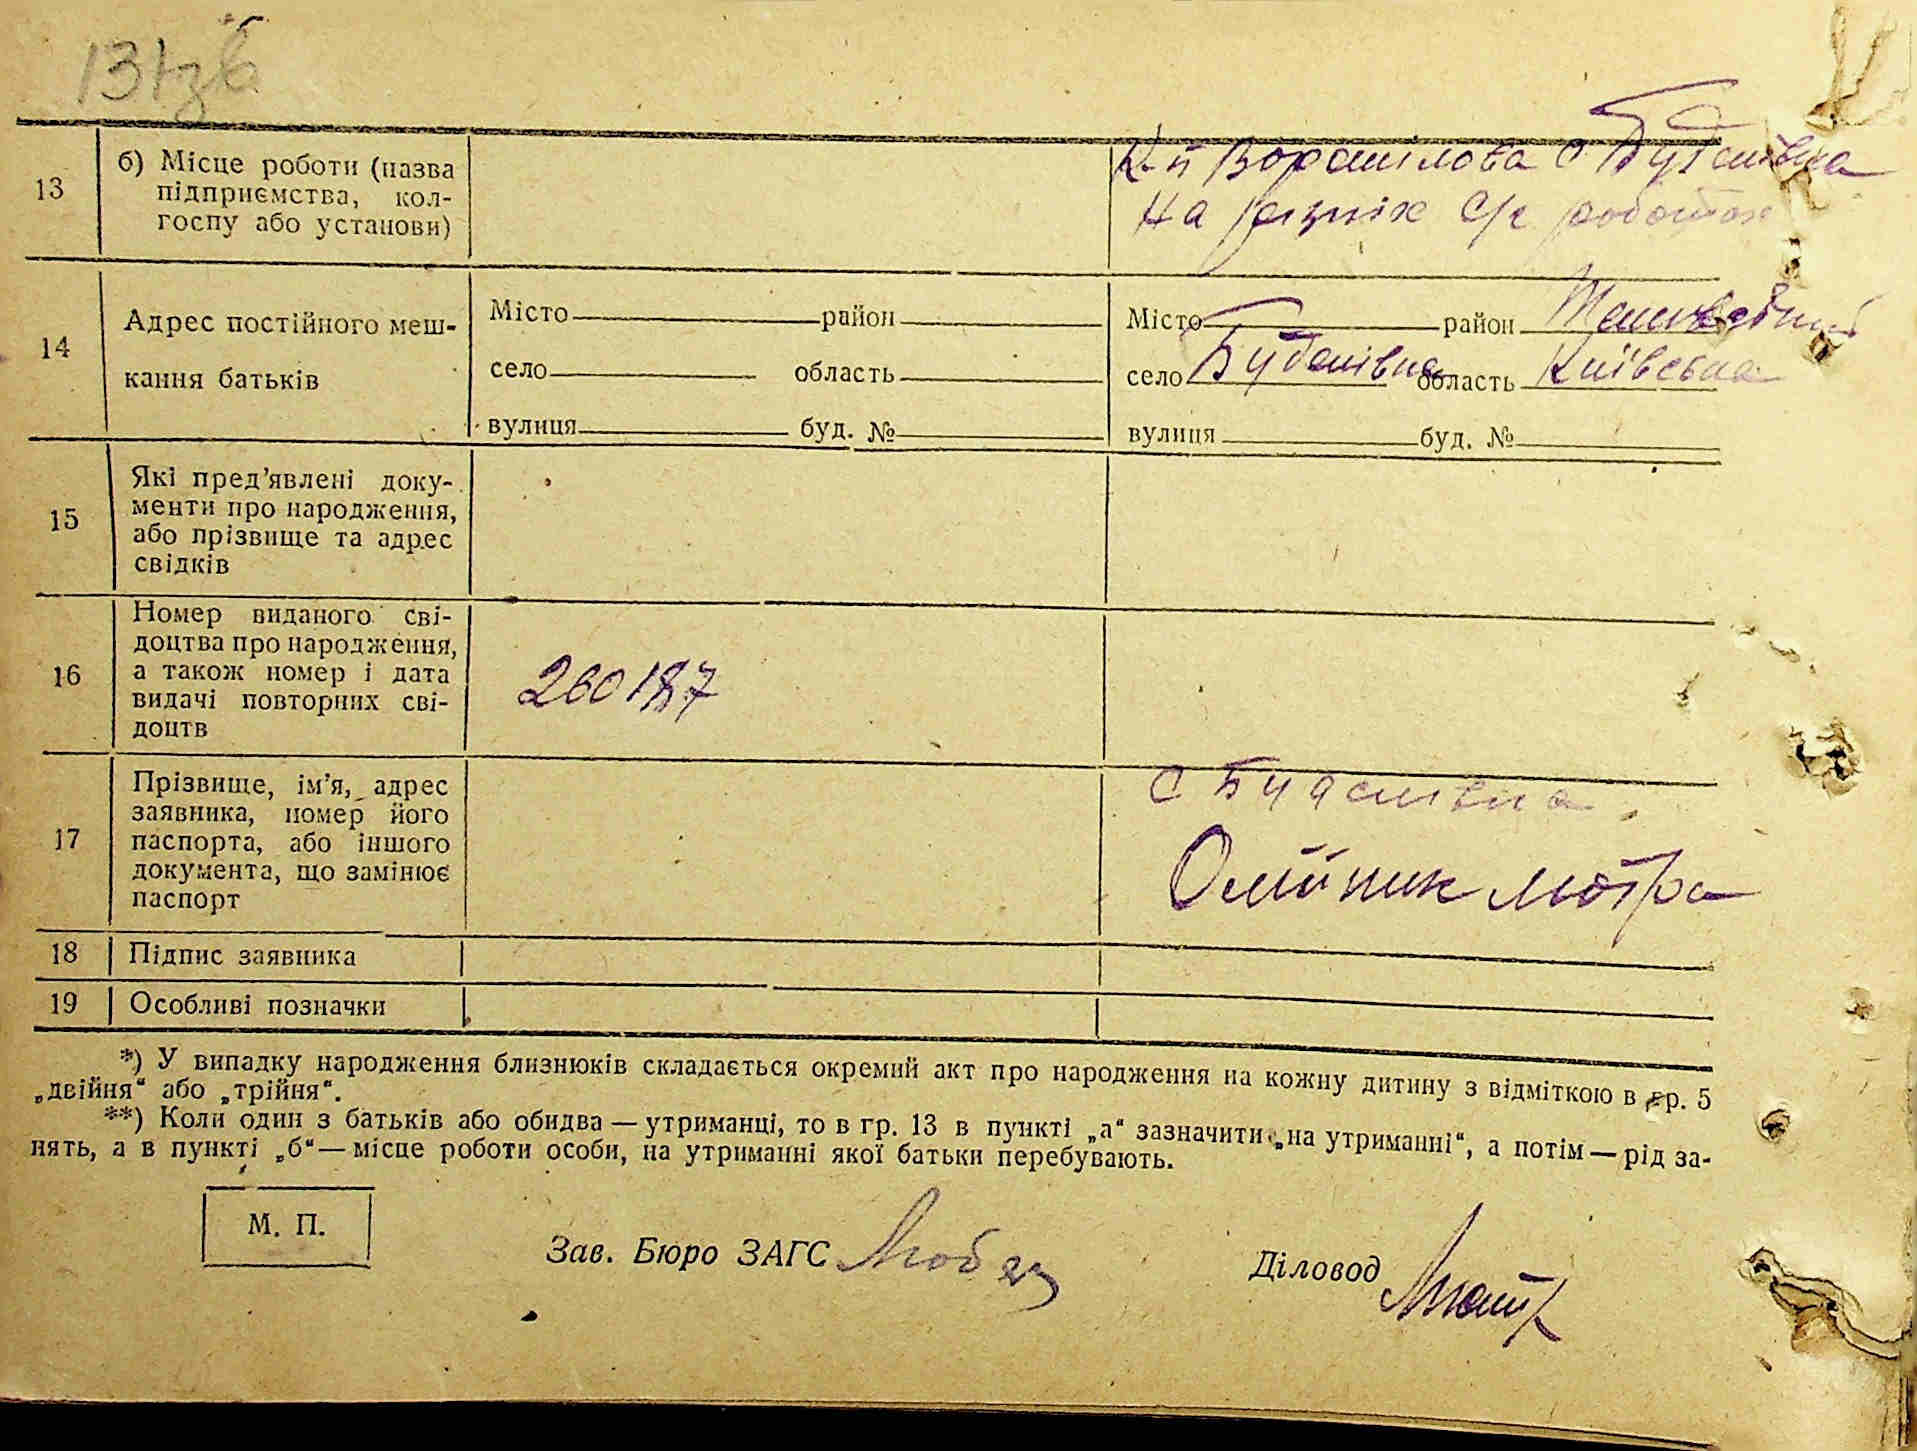 131зв
13
б) Місце роботи (назва
підприємства, кол-
госпу або установи)
К-п Ворошілова с Будаївка
На різніх С/г роботах
14
Адрес постійного меш-
кання батьків
Місто район
село область
вулиця буд. №
Місто район
село Будаївка область Київська
вулиця буд. №
15
Які пред'явлені доку-
менти про народження,
або прізвище та адрес
свідків
16
Номер виданого сві-
доцтва про народження,
а також номер і дата
видачі повторних сві-
доцтв
260187
17
Прізвище, ім'я, адрес
заявника, номер його
паспорта, або іншого
документа, що замінює
паспорт
с Будаївка
Олійник Мотра
18 Підпис заявника
19 Особливі позначки
*) У випадку народження близнюків складається окремий акт про народження на кожну дитину з відміткою в гр. 5
„двійня“ або „трійня“.
**) Коли один з батьків або обидва — утриманці, то в гр. 13 в пункті „а“ зазначити „на утриманні“, а потім — рід за-
нять, а в пункті „б“ — місце роботи особи, на утриманні якої батьки перебувають.
М. П.
Зав. Бюро ЗАГС
Діловод